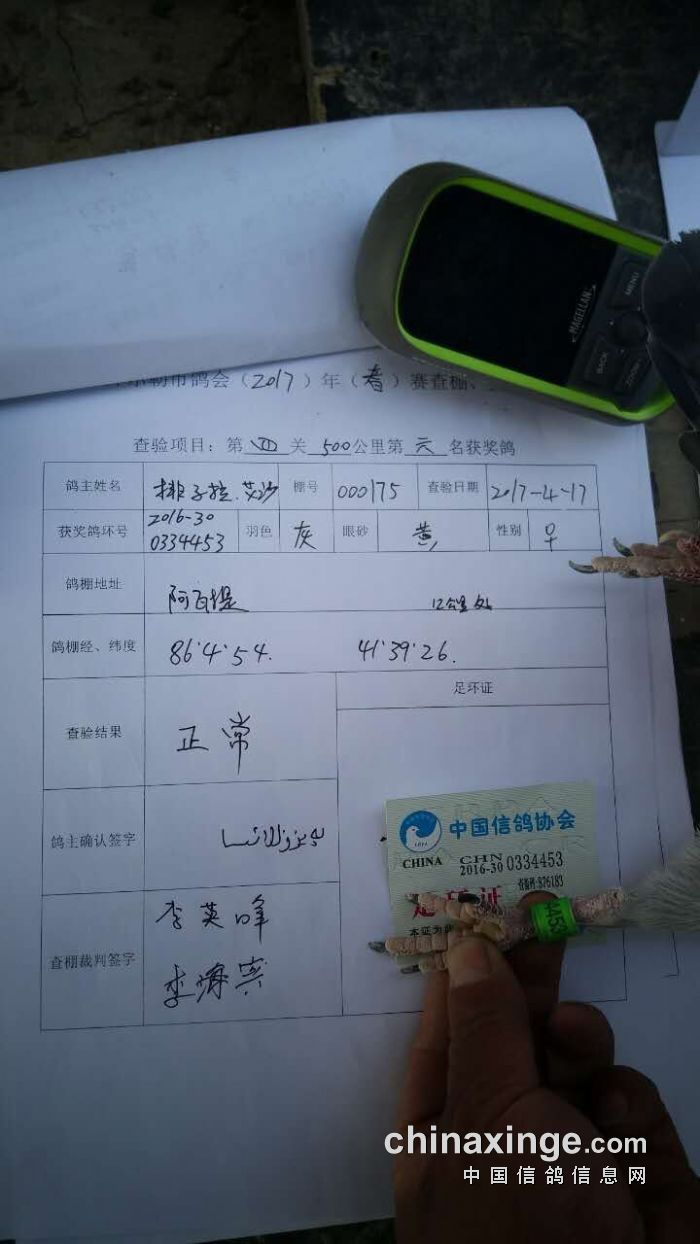 尔勒市鸽会（2017）年（春）赛查棚、
查验项目：第四关 500公里第六名获奖鸽
鸽主姓名 排子拉.艾沙 棚号 000175 查验日期 2017-4-17
获奖鸽环号 2016-30 0334453 羽色 灰 眼砂 黄 性别 ♀
鸽棚地址 阿瓦提 12公里处
鸽棚经、纬度 86°4'54. 41°39'26.
查验结果 正常
足环证
鸽主确认签字
查棚裁判签字 李英峰
李海宾
中国信鸽协会
CHINA CHN
2016-30 0334453
足环证
本证为
MAGELLAN
MENU
BACK
ZOOM
chinaxinge.com
中国信鸽信息网